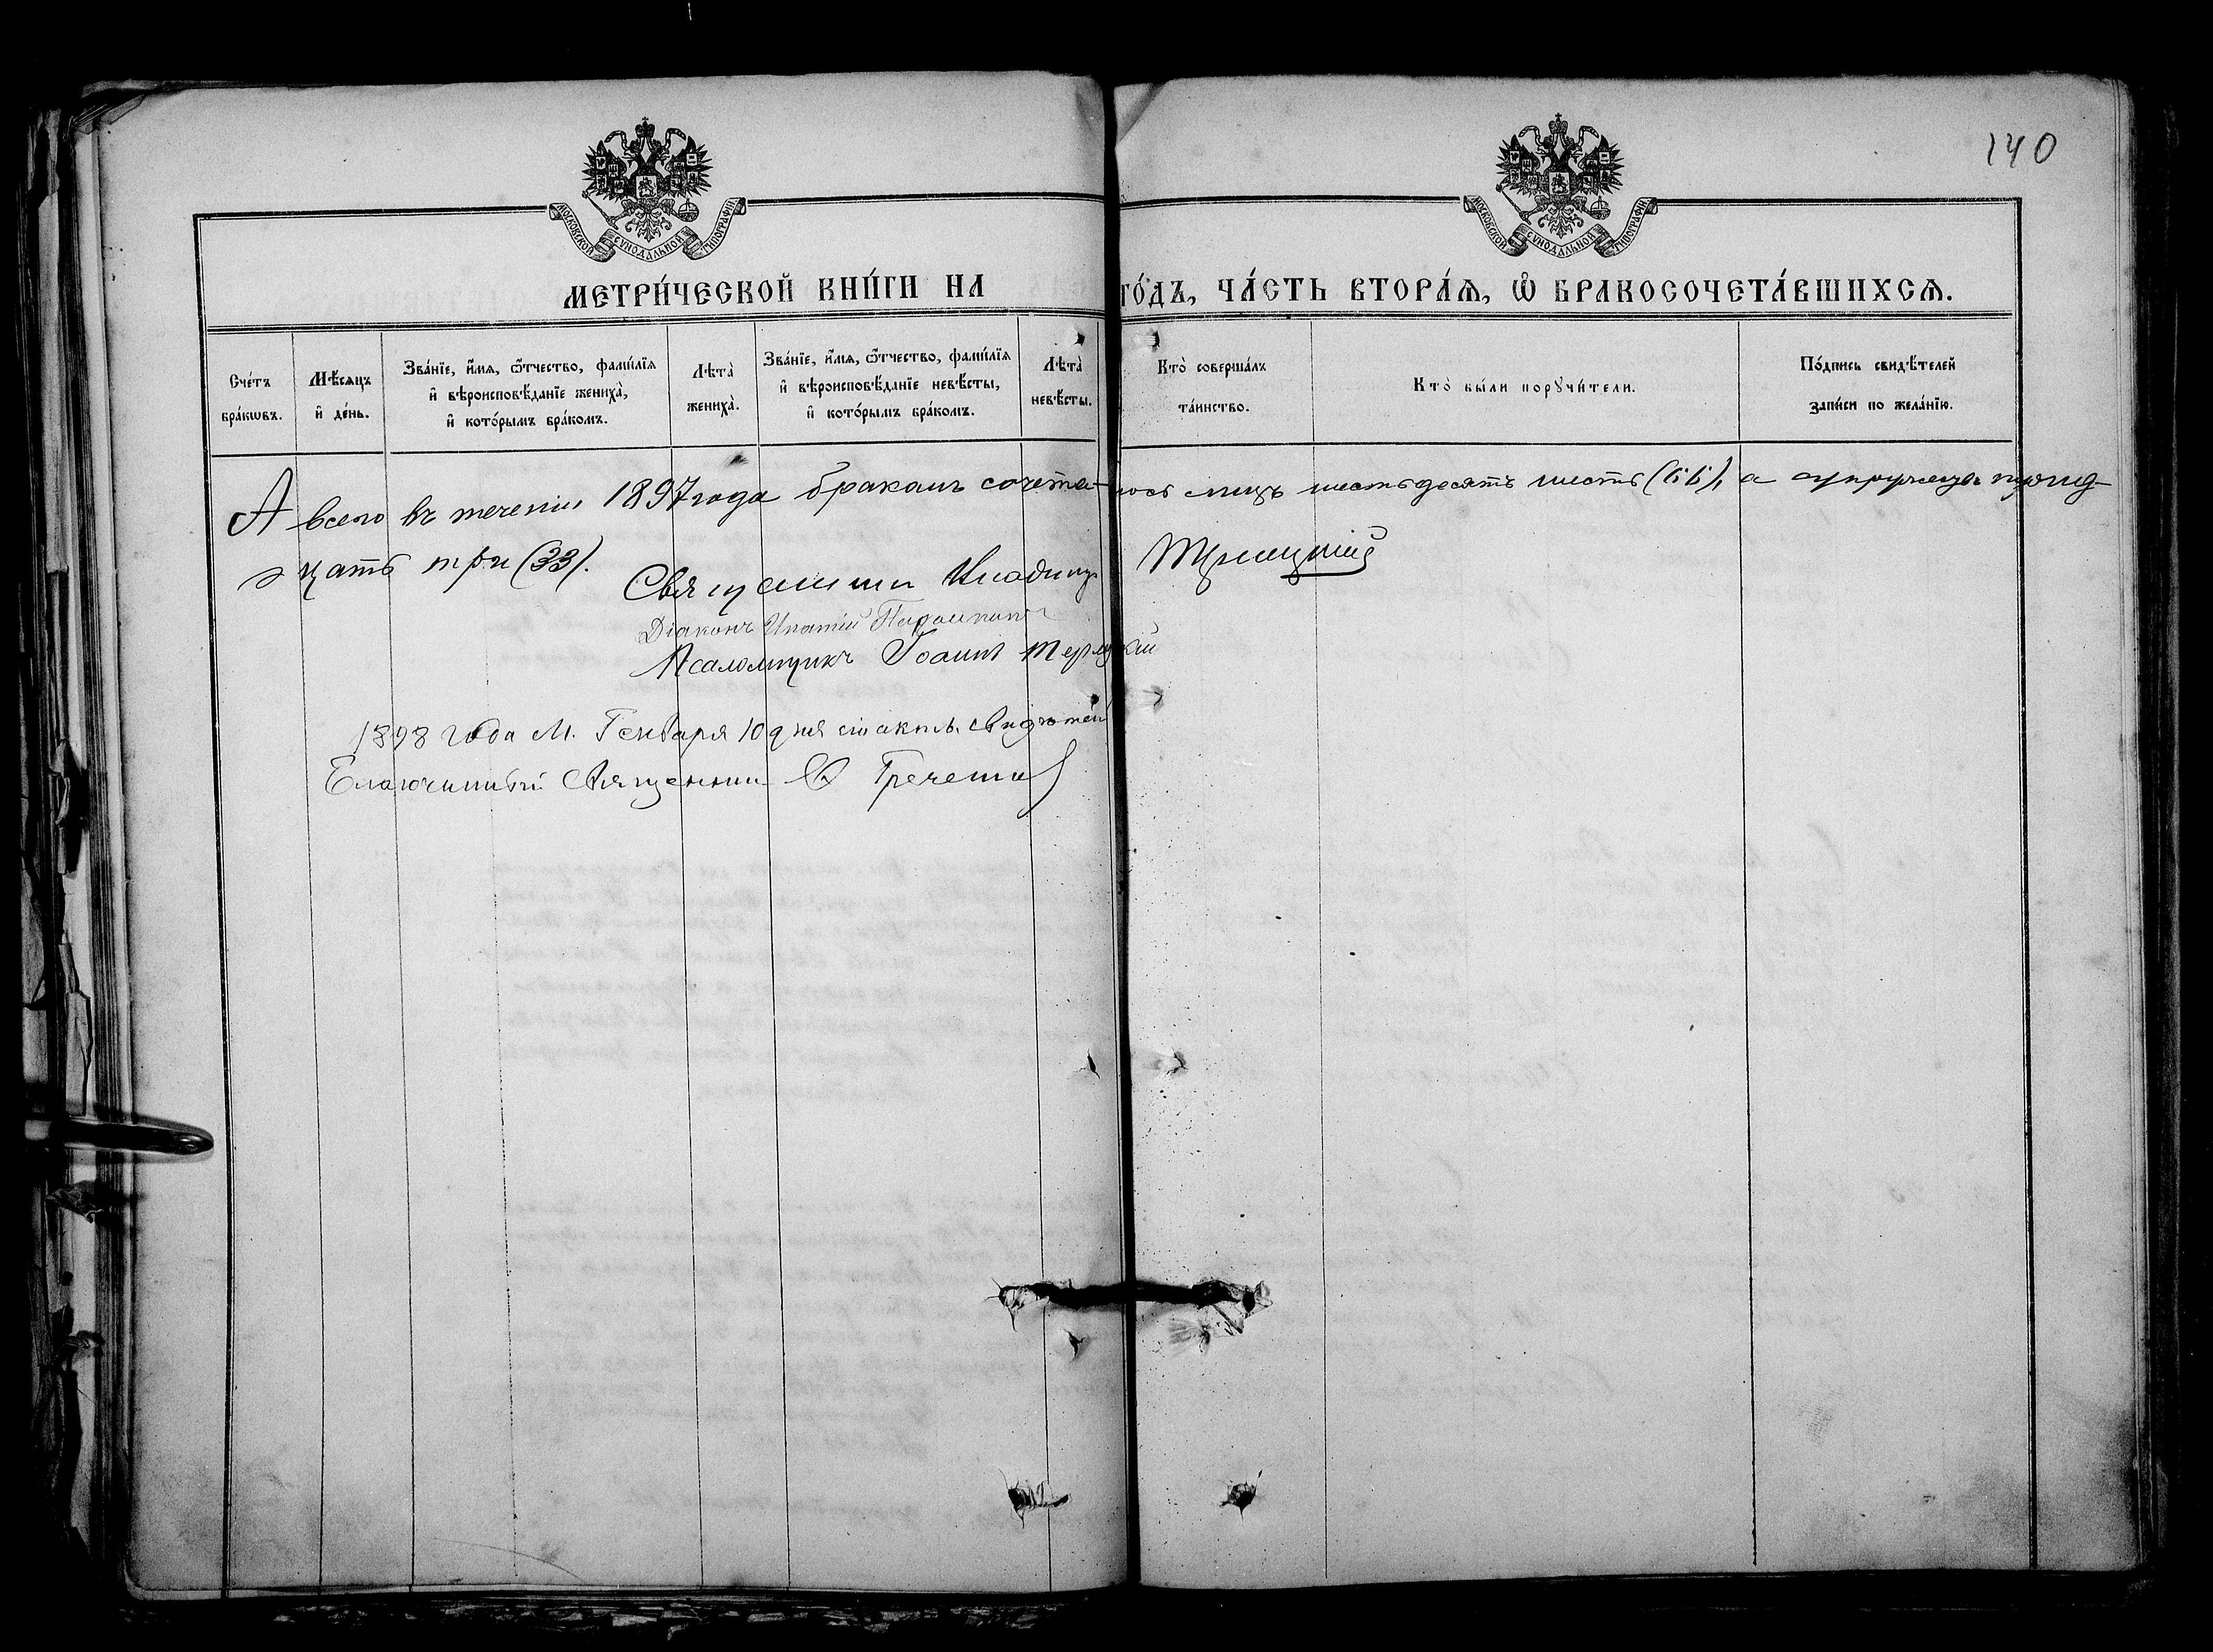 140
МОСКОВСКОЙ СѴНОДАЛЬНОЙ ТИПОГРАФІИ
МОСКОВСКОЙ СѴНОДАЛЬНОЙ ТИПОГРАФІИ
МЕТРИ́ЧЕСКОЙ КНИ́ГИ НА ГО́ДЪ, ЧА́СТЬ ВТОРА́Ѧ, Ѽ БРАКОСОЧЕТА́ВШИХСѦ.
Сче́тъ бра́кѡвъ.
Мѣ́сяцъ и҆ де́нь.
Зва́нїе, и҆́мѧ, ѻ҆́тчество, фами́лїѧ и҆ вѣроисповѣ́данїе жениха̀, и҆ кото́рымъ бра́комъ.
Лѣта̀ жениха̀.
Зва́нїе, и҆́мѧ, ѻ҆́тчество, фами́лїѧ и҆ вѣроисповѣ́данїе невѣ́сты, и҆ кото́рымъ бра́комъ.
Лѣта̀ невѣ́сты.
Кто̀ соверша́лъ та́инство.
Кто̀ бы́ли порꙋчи́тели.
По́дпись свидѣ́телей за́писи по жела́нїю.
А всего въ теченіи 1897 года бракомъ сочеталось лицъ шестьдесятъ шесть (66), а супружествъ тридцать три (33).
Священникъ
Діаконъ Игнатій
Псаломщикъ Іоаннъ
1898 года М. Генваря 10 дня сіи акты свидѣтел
Благочинный Священникъ